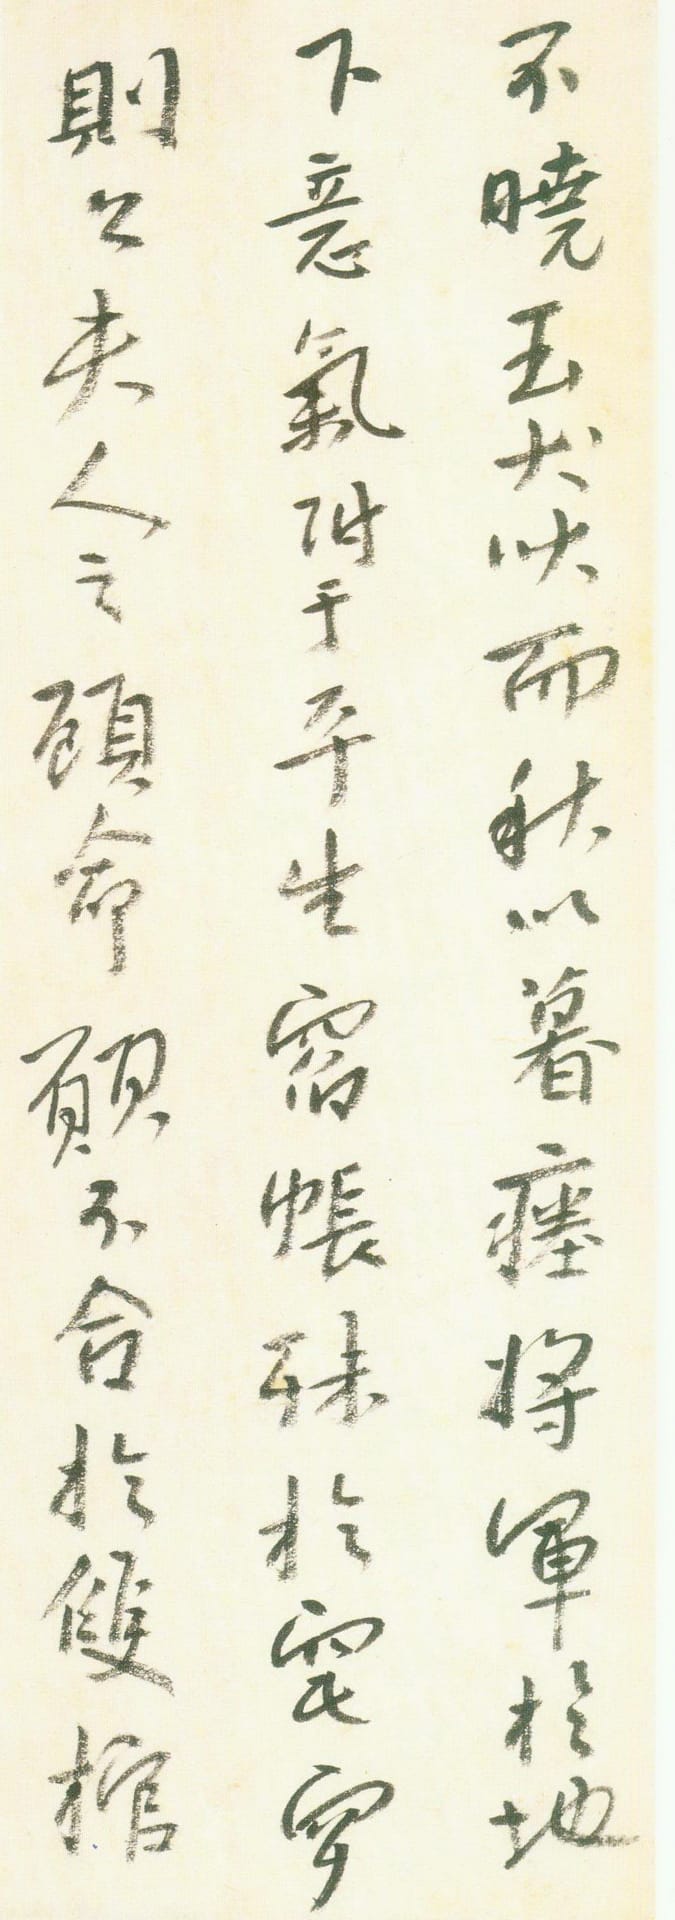 不曉玉犬吠而秋以暮瘞將軍於地
下意氣附于平生宿帳殊於窀穸
則公夫人之顧命願不合於雙棺